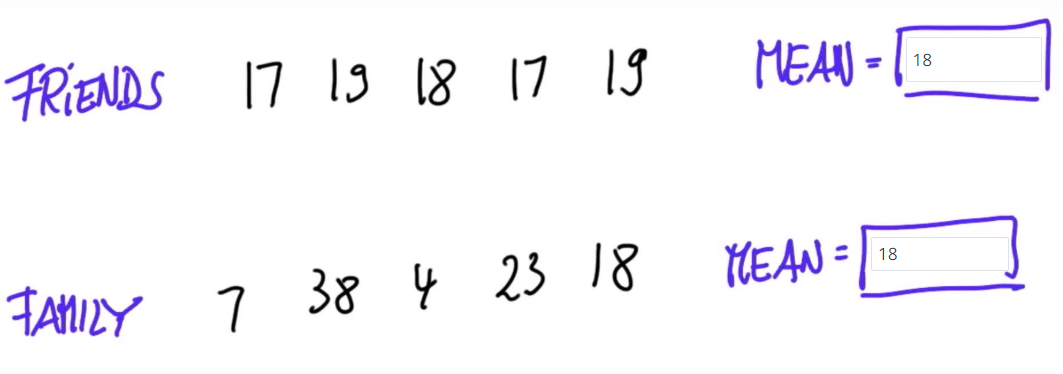 FRiENDS 17 19 18 17 19 MEAN = 18
FAMILY 7 38 4 23 18 MEAN = 18